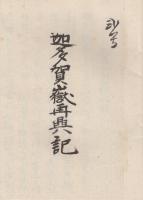 加多賀嶽再興記